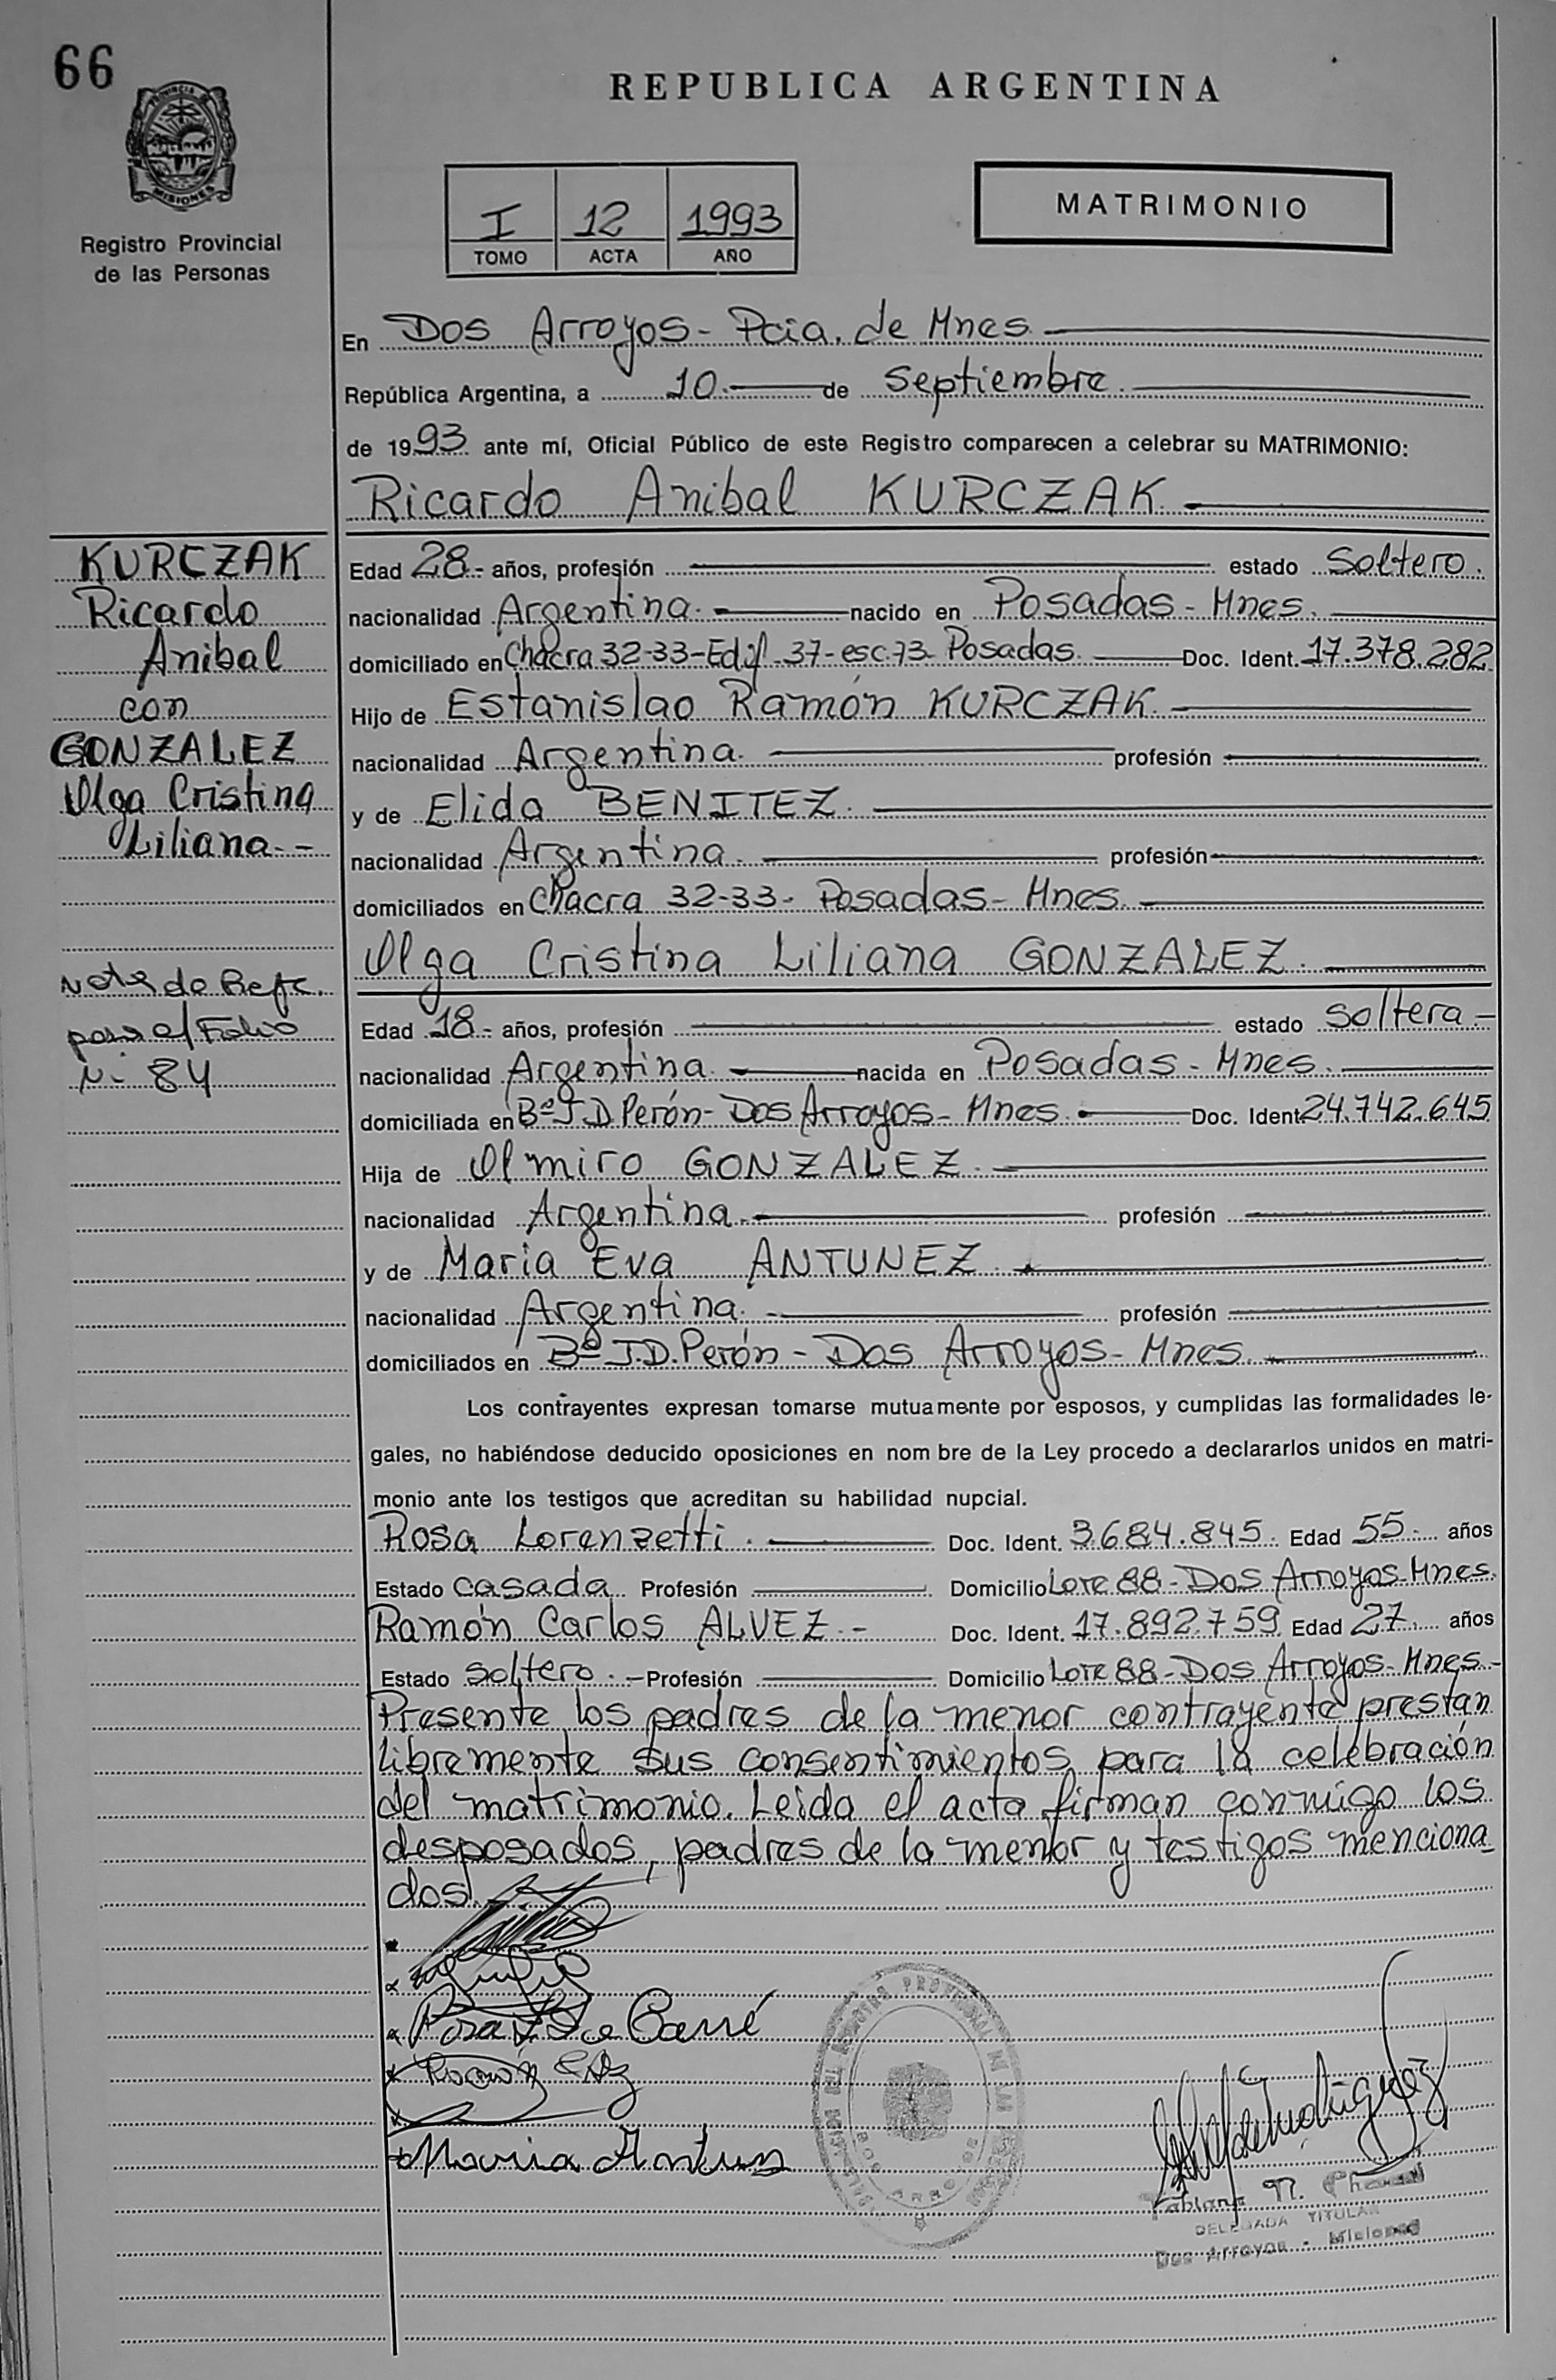 66
REPUBLICA ARGENTINA
PROVINCIA DE
MISIONES
Registro Provincial
de las Personas
I 12 1993
TOMO ACTA AÑO
MATRIMONIO
En Dos Arroyos - Pcia. de Mnes.
República Argentina, a 10.- de Septiembre.
de 1993 ante mí, Oficial Público de este Registro comparecen a celebrar su MATRIMONIO:
Ricardo Anibal KURCZAK.
KURCZAK
Ricardo
Anibal
con
GONZALEZ
Olga Cristina
Liliana.-
Nota de Refc.
para el Folio
Nº 84
Edad 28.- años, profesión estado Soltero.
nacionalidad Argentina. nacido en Posadas - Mnes.
domiciliado en Chacra 32-33-Edif. 37-esc.73- Posadas. Doc. Ident. 17.378.282
Hijo de Estanislao Ramón KURCZAK.
nacionalidad Argentina. profesión
y de Elida BENITEZ.
nacionalidad Argentina. profesión
domiciliados en Chacra 32-33- Posadas- Mnes.
Olga Cristina Liliana GONZALEZ.
Edad 18.- años, profesión estado Soltera.-
nacionalidad Argentina. nacida en Posadas - Mnes.
domiciliada en Bº J.D. Perón- Dos Arroyos- Mnes. Doc. Ident. 24.742.645
Hija de Olmiro GONZALEZ.
nacionalidad Argentina. profesión
y de Maria Eva ANTUNEZ.
nacionalidad Argentina. profesión
domiciliados en Bº J.D. Perón - Dos Arroyos- Mnes.
Los contrayentes expresan tomarse mutuamente por esposos, y cumplidas las formalidades le-
gales, no habiéndose deducido oposiciones en nom bre de la Ley procedo a declararlos unidos en matri-
monio ante los testigos que acreditan su habilidad nupcial.
Rosa Lorenzetti. Doc. Ident. 3.684.845. Edad 55.- años
Estado casada Profesión Domicilio Lote 88- Dos Arroyos-Mnes.
Ramón Carlos ALVEZ.- Doc. Ident. 17.892.759 Edad 27. años
Estado soltero.- Profesión Domicilio Lote 88- Dos Arroyos- Mnes.-
Presente los padres de la menor contrayente prestan
libremente sus consentimientos para la celebración
del matrimonio. Leida el acta firman conmigo los
desposados, padres de la menor y testigos menciona
dos.
Rosa L. de Carré
Ramón
Maria Antunes
DELEGACION DEL REGISTRO PROVINCIAL DE LAS PERSONAS
DOS ARROYOS
Fabiana N.
DELEGADA TITULAR
Dos Arroyos - Misiones